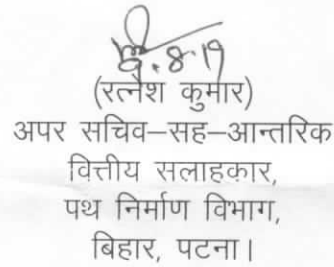 8.19
(रत्नेश कुमार)
अपर सचिव–सह–आन्तरिक
वित्तीय सलाहकार,
पथ निर्माण विभाग,
बिहार, पटना।